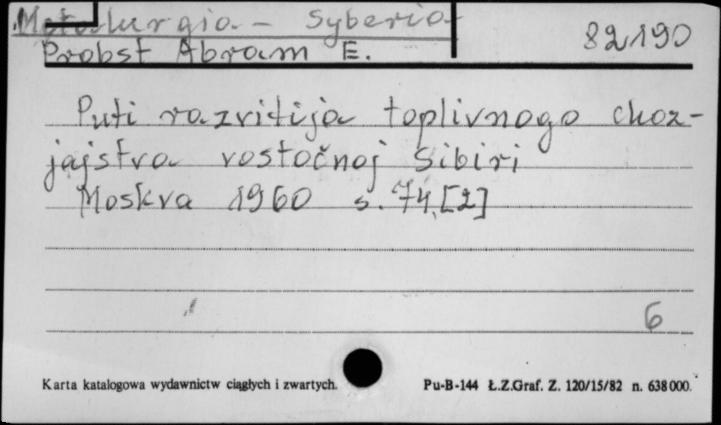 Metalurgia - Syberia
82190
Probst Abram E.
Puti razvitija toplivnogo choz-
jajstva vostočnoj Sibiri
Moskva 1960 s. 74, [2]
6
Karta katalogowa wydawnictw ciągłych i zwartych.
Pu-B-144 Ł.Z.Graf. Z. 120/15/82 n. 638000.